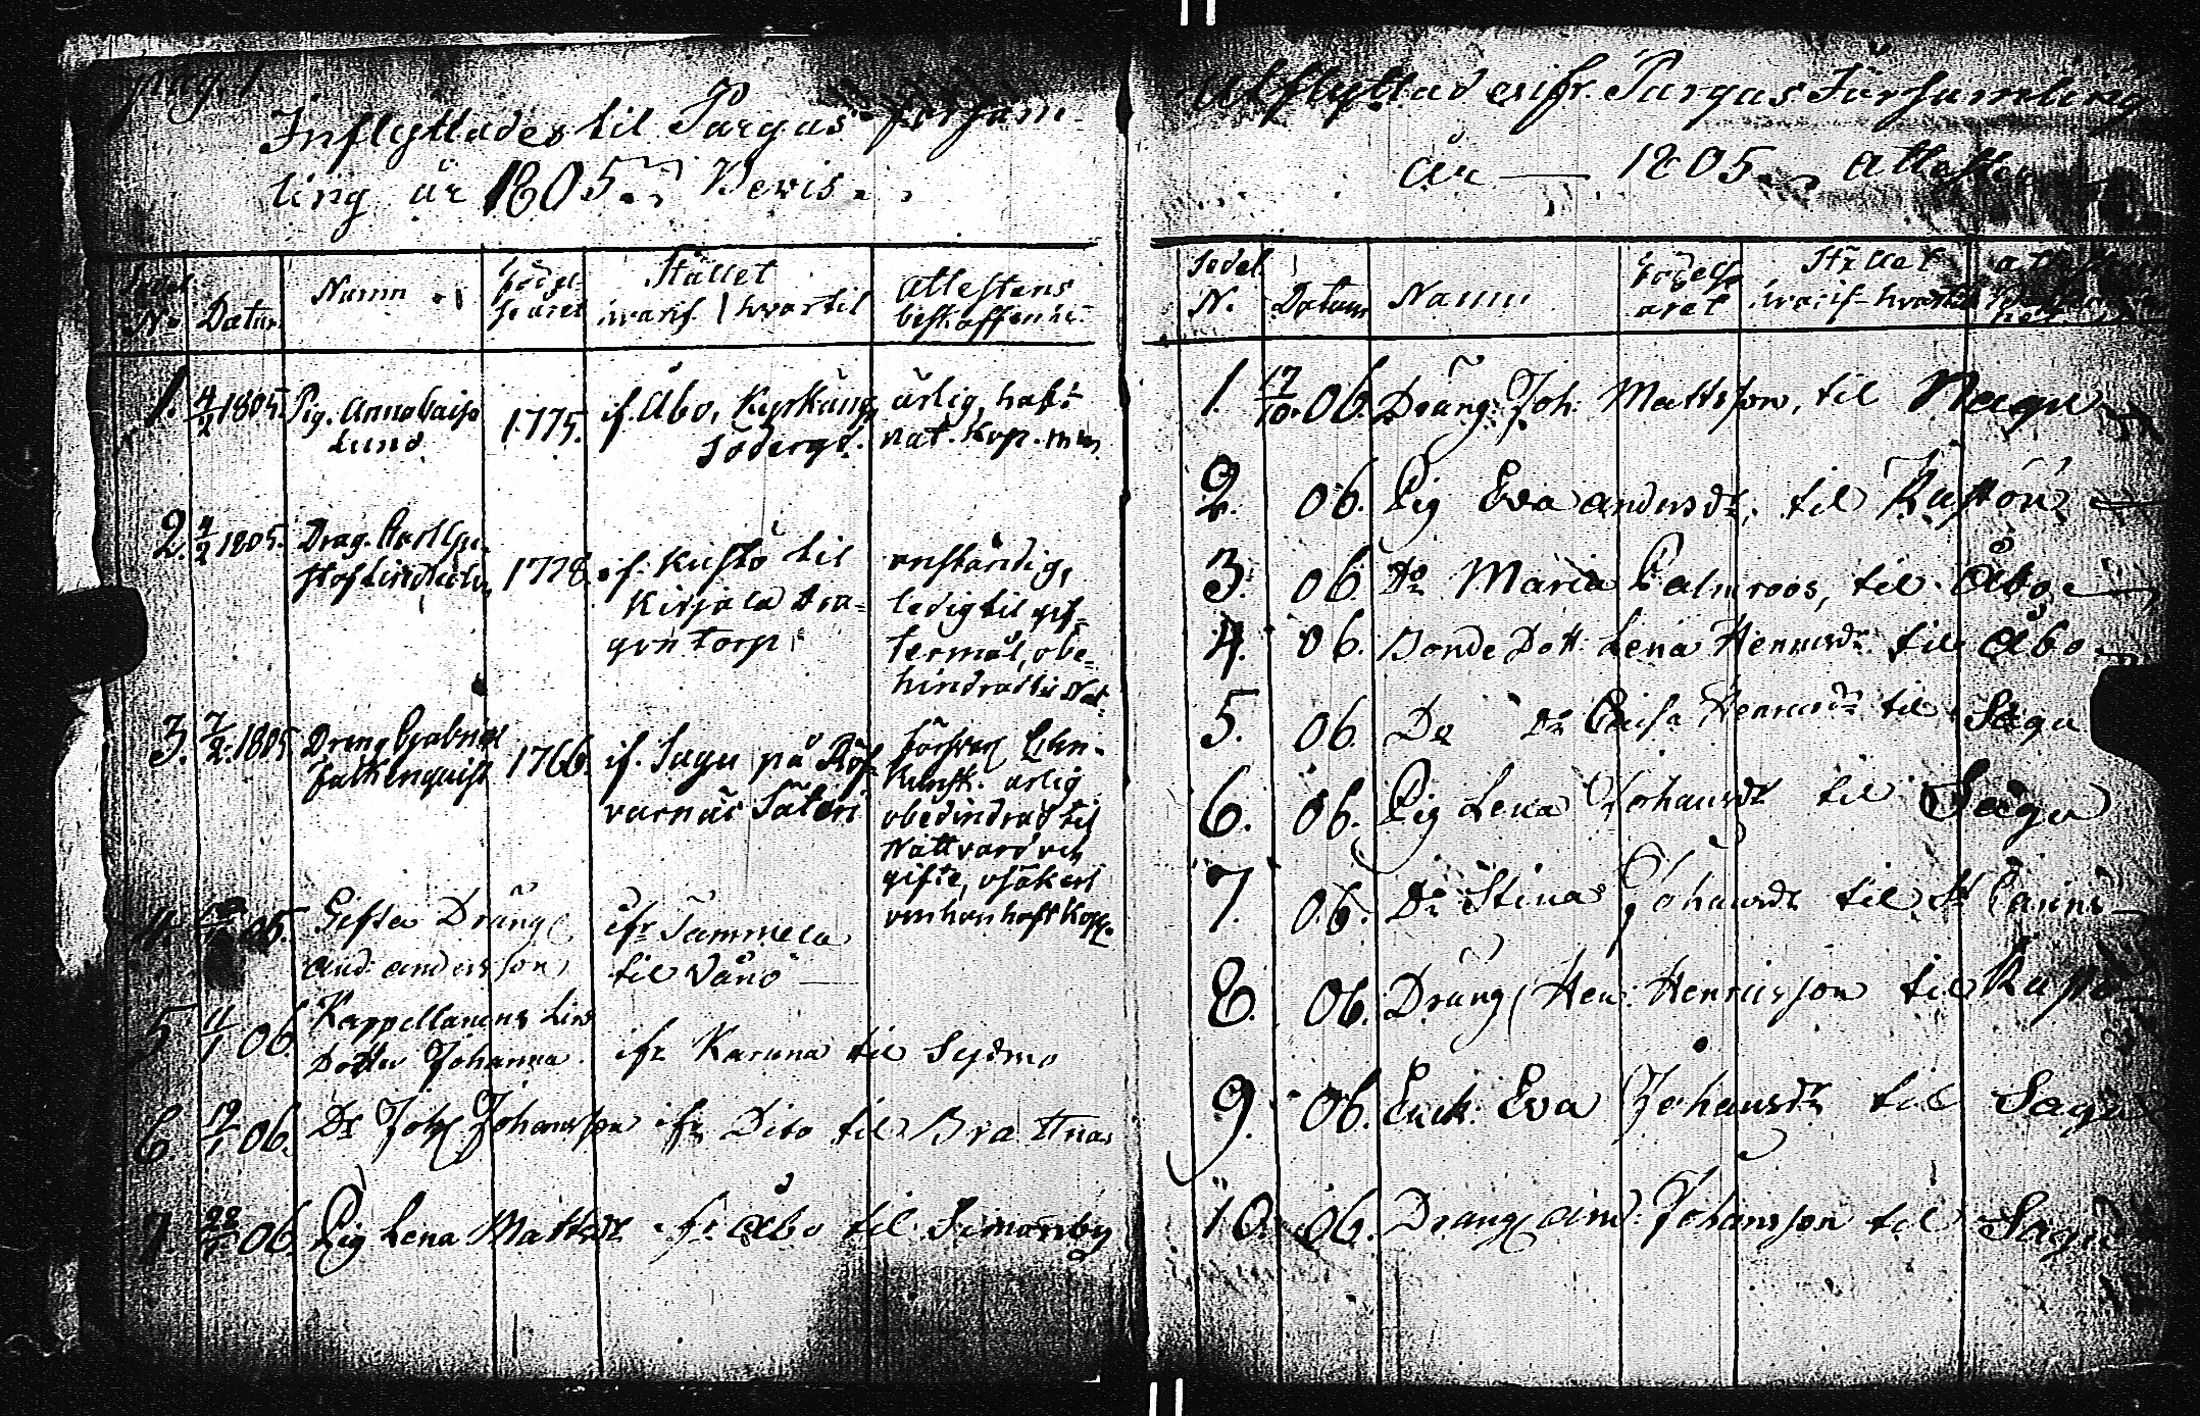 pag. 1.
Inflyttades til Pargas församling
ling år 1805. Bevis.
Sedel
No
Datum
Namn
Födelse
året
Stället
hvarif. hvartil
Attestens
beskaffenhet
1. 4/2 1805. Pig. Anna Caisa
Lund. 1775. if. Åbo, Kyrkäng,
Södergd. ärlig, haft
nat. Kop.
2. 4/2 1805. Drag. Carl Gu-
stof Lindholm 1778. if. Kustö til
Kirjala Dra-
gon torp
anständig,
ledig til gif-
termål, obe-
hindrad til Nat-
3. 7/2 1805 Dreng Gabriel
Falkenquist 1766. if. Sagu på Röf-
varnäs Säteri
försvarl. Chn.
Kunsk. ärlig
obehindrad til
Nattvard och
gifte, osäkert
om han haft Kopp.
4. 05. Gifta Dräng
And: Andersson ifr Sammela
til Vånö
5. 11/1 06. Kappellanens Lind
Dotter Johanna. ifr Karuna til Sydmo
6. 19/1 06. Dr Joh Johansson ifr Dito til Brattnäs
7. 22/1 06. Pig Lena Mattsdr ifr Åbo til Simonby
Utflyttad utifr. Pargas Församling
år — 1805. Attester
Sedel
N.
Datum
Namn
Födelse
året
Stället
hvarif- hvartil
1. 17/10. 06. Dräng: Joh: Mattsson, til Nagu
2. 06. Pig Eva Andersdr. til Kustö
3. 06 Do Maria Palmroos, til Åbo
4. 06. Bonde Dott: Lena Henricsdr. til Åbo
5. 06. Do Do Caisa Henricsdr til Sagu
6. 06. Pig Lena Johansdr til Sagu
7. 06. Do Stina Johansdr til St Carins
8. 06. Dräng Hen: Henricsson til
9. 06. Enck: Eva Johansdr til Sagu
10. 06. Dräng And: Johansson til Sagu